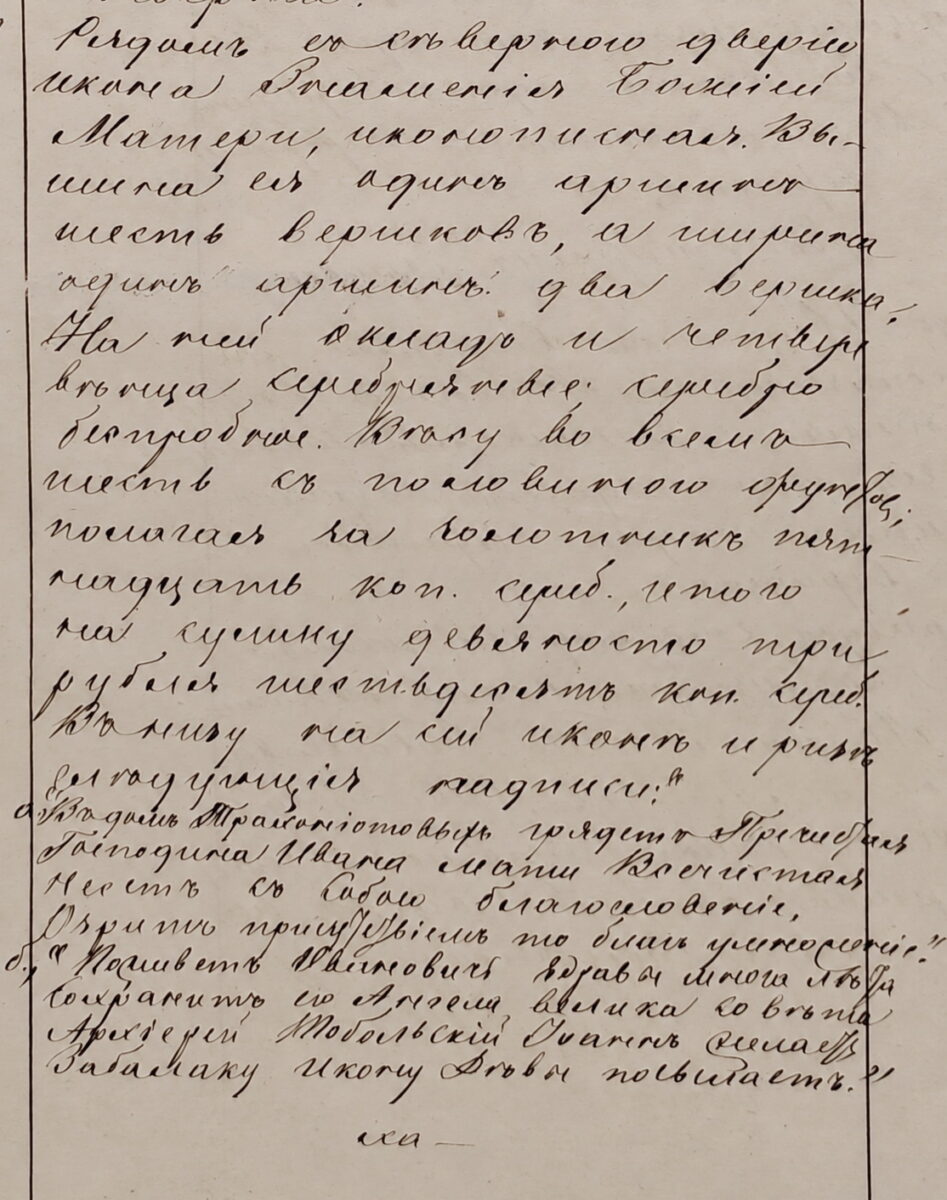 Рядомъ съ сѣверною дверію
икона Знаменія Божіей
Матери, иконописная. Вы-
шина ея одинъ аршинъ
шесть вершковъ, а ширина
одинъ аршинъ два вершка.
На ней окладъ и четыре
вѣнца серебряные; серебро
беспробное. Вѣсу во всемъ
шесть съ половиною фунтовъ;
полагая за золотникъ пят-
надцать коп. сереб., итого
на сумму девяносто три
рубля шестьдесятъ коп. сереб.
Внизу на сей иконѣ и ризѣ
слѣдующія надписи:
а, "Въ домъ грядетъ Пречистая
Господина Ивана мати Всечистая
Несетъ съ собою благословеніе,
Озритъ присутствіемъ то благъ умноженіе."
б, "Поживетъ Ивановичъ здравы многа лѣта
Сохранитъ его Ангела велика совѣта
Архіерей Тобольскій Іоаннъ желаетъ
икону Дѣвы посылаетъ."
ха —